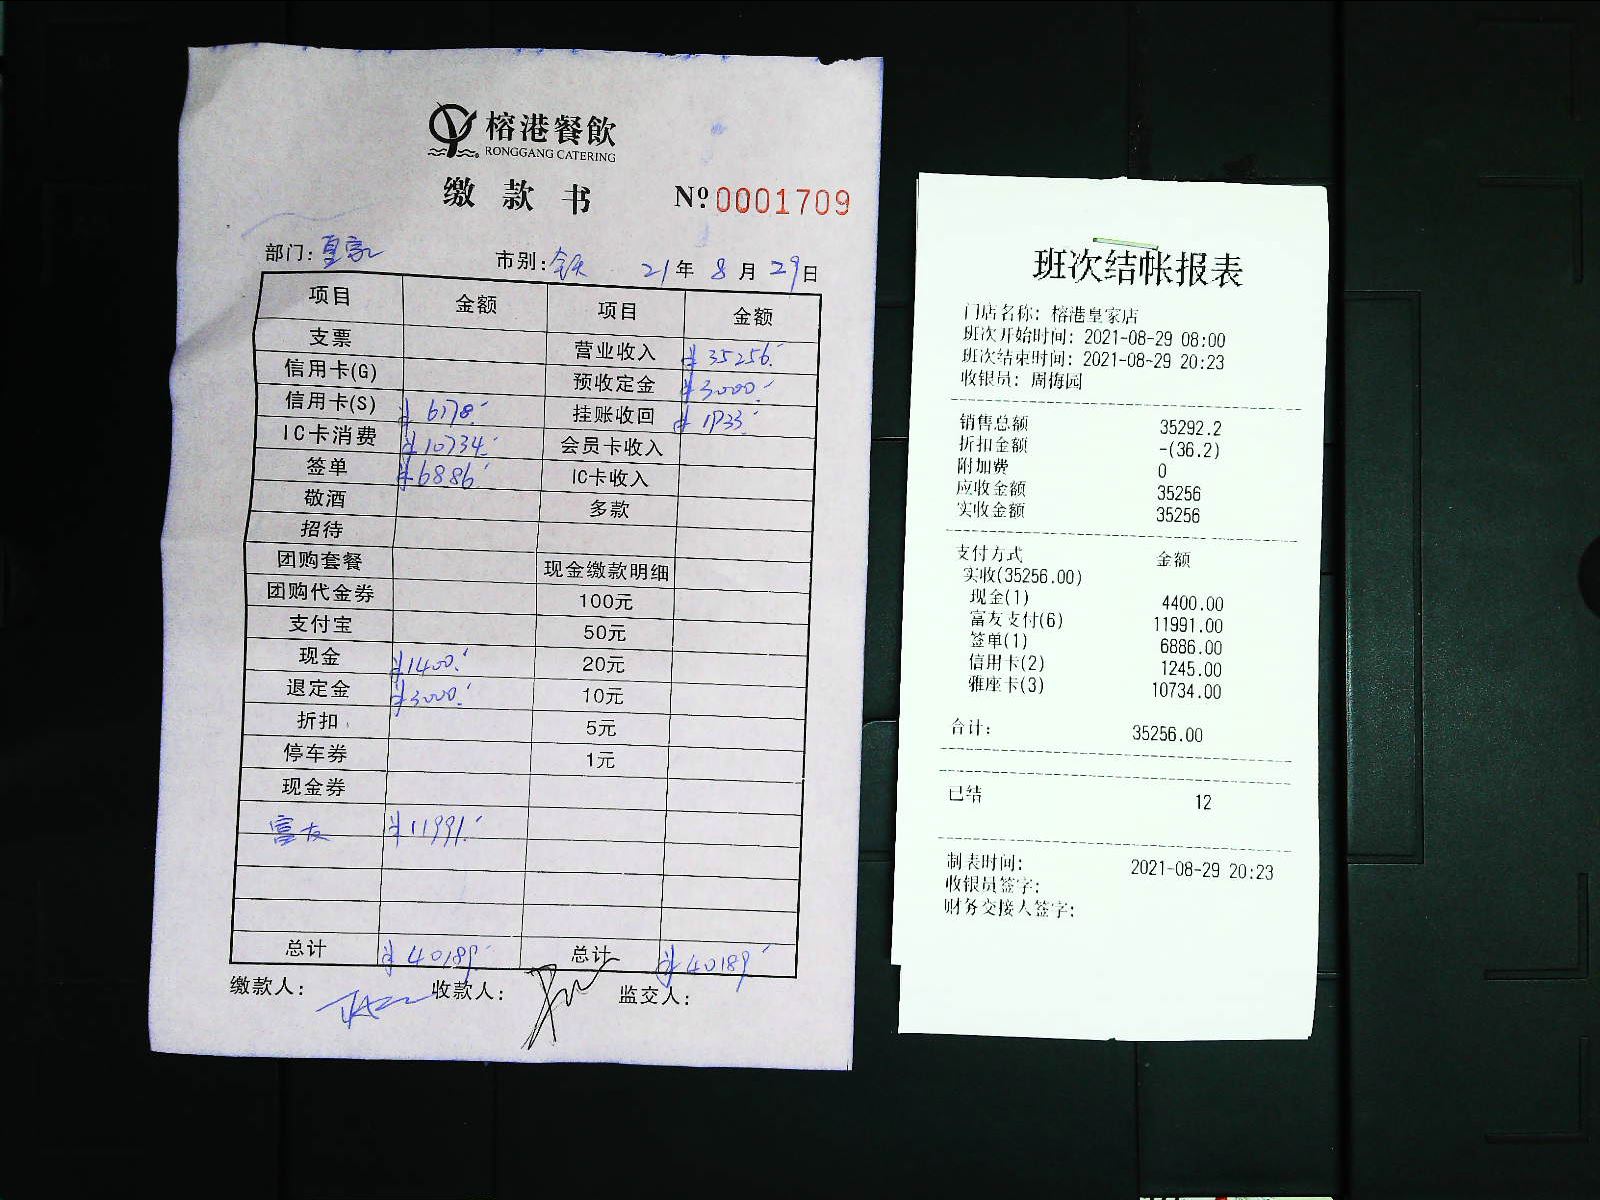 榕港餐飲
RONGGANG CATERING
缴款书 №0001709
部门:皇家 市别:全天 21年8月29日
项目 金额 项目 金额
支票 营业收入 ¥35256.-
信用卡(G) 预收定金 ¥3000.-
信用卡(S) ¥6178.- 挂账收回 ¥1933.-
IC卡消费 ¥10734.- 会员卡收入
签单 ¥6886.- IC卡收入
敬酒 多款
招待
团购套餐 现金缴款明细
团购代金券 100元
支付宝 50元
现金 ¥1400.- 20元
退定金 ¥3000.- 10元
折扣 5元
停车券 1元
现金券
富友 ¥11991.-
总计 ¥40189.- 总计 ¥40189.-
缴款人: 收款人: 监交人:
班次结帐报表
门店名称: 榕港皇家店
班次开始时间: 2021-08-29 08:00
班次结束时间: 2021-08-29 20:23
收银员: 周梅园
销售总额 35292.2
折扣金额 -(36.2)
附加费 0
应收金额 35256
实收金额 35256
支付方式 金额
实收(35256.00)
现金(1) 4400.00
富友支付(6) 11991.00
签单(1) 6886.00
信用卡(2) 1245.00
雅座卡(3) 10734.00
合计: 35256.00
已结 12
制表时间: 2021-08-29 20:23
收银员签字:
财务交接人签字: